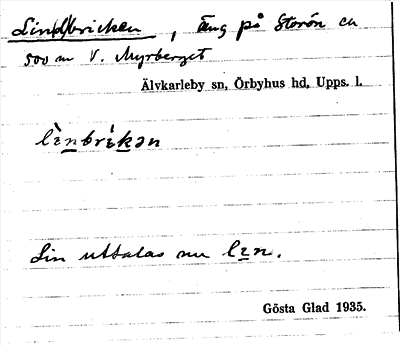 Lin(d)bricken, äng på Storön ca
500 m V. Myrberget
Älvkarleby sn, Örbyhus hd, Upps. l.
lìnbrìkən
Lin uttalas nu lɪn.
Gösta Glad 1935.